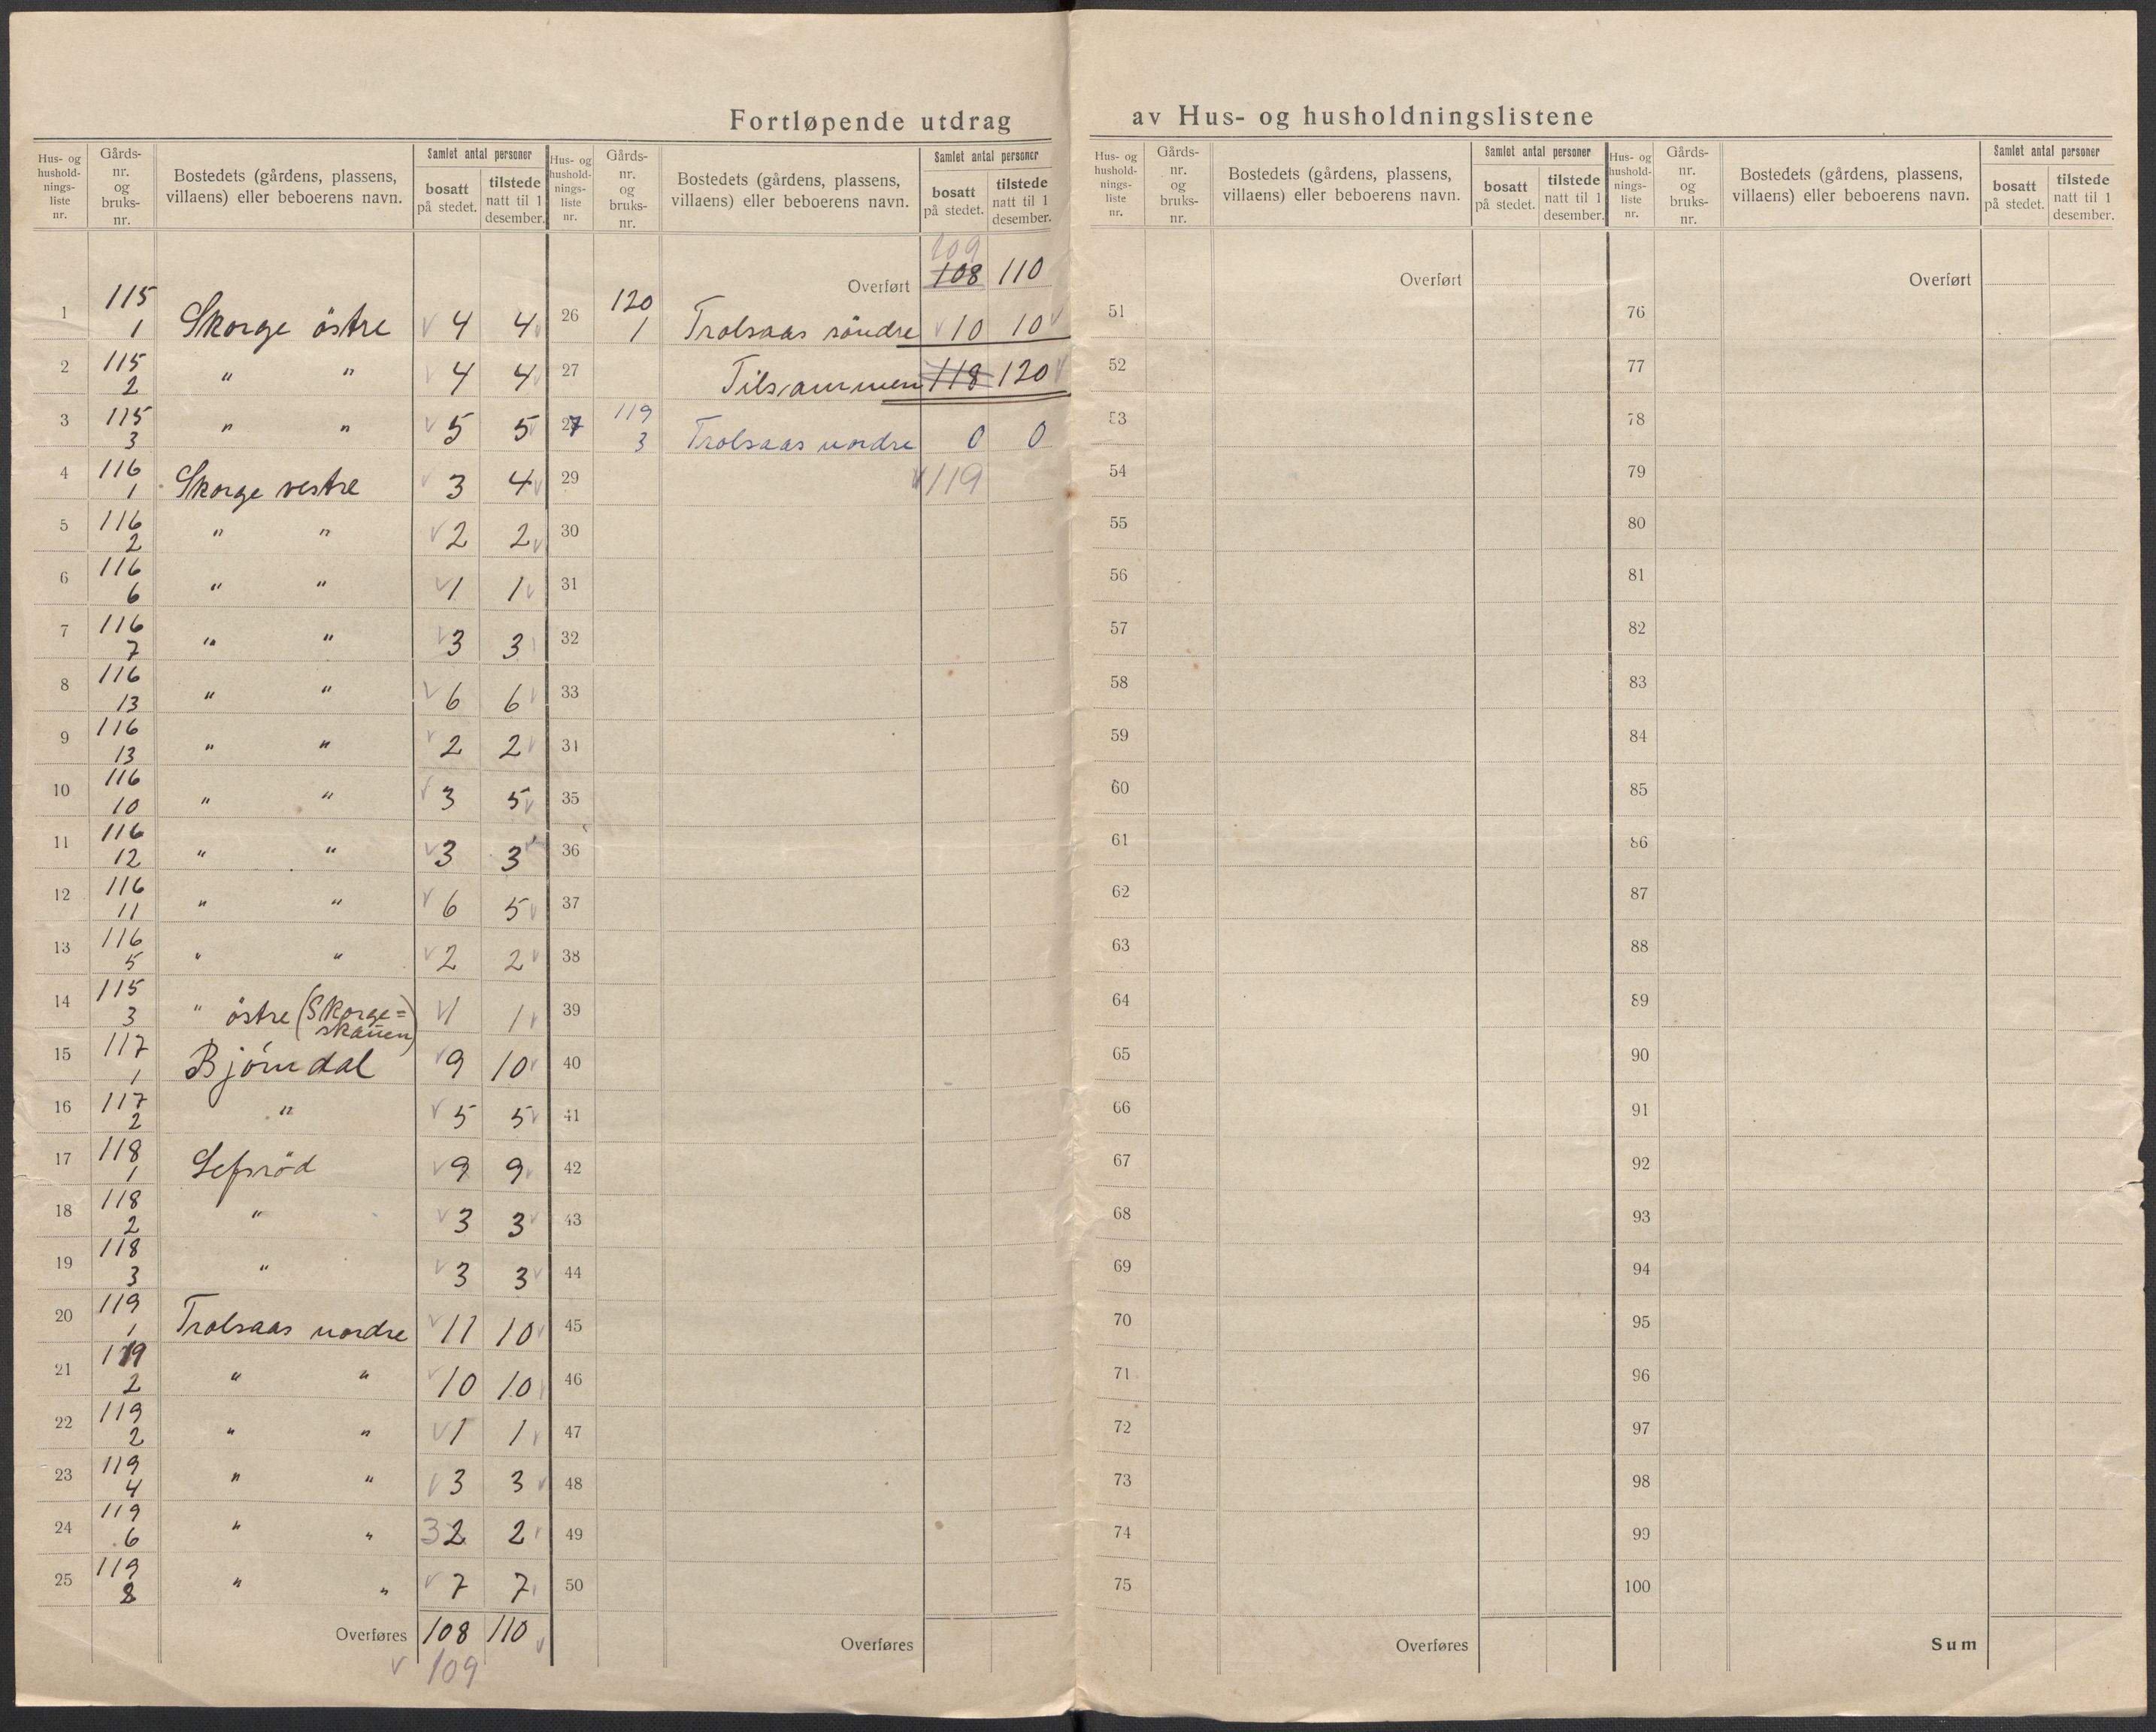 Fortløpende utdrag av Hus- og husholdningslistene
Hus- og husholdningsliste nr. | Gårdsnr. og bruksnr. | Bostedets (gårdens, plassens, villaens) eller beboerens navn. | Samlet antal personer | bosatt på stedet. | tilstede natt til 1 desember.
1 115 1 Skorge östre v 4 4 v
2 115 2 " " v 4 4 v
3 115 3 " " v 5 5 v
4 116 1 Skorge vestre v 3 4 v
5 116 2 " " v 2 2 v
6 116 6 " " v 1 1 v
7 116 7 " " v 3 3 v
8 116 13 " " v 6 6 v
9 116 13 " " v 2 2 v
10 116 10 " " v 3 5 v
11 116 12 " " v 3 3 v
12 116 11 " " v 6 5 v
13 116 5 " " v 2 2 v
14 115 3 " östre (Skorge= skauen) v 1 1 v
15 117 1 Björndal v 9 10 v
16 117 2 " v 5 5 v
17 118 1 Lefsröd v 9 9 v
18 118 2 " v 3 3 v
19 118 3 " v 3 3 v
20 119 1 Trolsaas nordre v 11 10 v
21 119 2 " " v 10 10 v
22 119 2 " " v 1 1 v
23 119 4 " " v 3 3 v
24 119 6 " " 3 2 2 v
25 119 8 " " v 7 7 v
Overføres 108 110 v
v 109
Hus- og husholdningsliste nr. | Gårdsnr. og bruksnr. | Bostedets (gårdens, plassens, villaens) eller beboerens navn. | Samlet antal personer | bosatt på stedet. | tilstede natt til 1 desember.
109
Overført 108 110
26 120 1 Trolsaas söndre v 10 10 v
27 Tilsammen 118 120 v
27 119 3 Trolsaas nordre 0 0
29 v 119
30
31
32
33
31
35
36
37
38
39
40
41
42
43
44
45
46
47
48
49
50
Overføres
Hus- og husholdningsliste nr. | Gårdsnr. og bruksnr. | Bostedets (gårdens, plassens, villaens) eller beboerens navn. | Samlet antal personer | bosatt på stedet. | tilstede natt til 1 desember.
Overført
51
52
53
54
55
56
57
58
59
60
61
62
63
64
65
66
67
68
69
70
71
72
73
74
75
Overføres
Hus- og husholdningsliste nr. | Gårdsnr. og bruksnr. | Bostedets (gårdens, plassens, villaens) eller beboerens navn. | Samlet antal personer | bosatt på stedet. | tilstede natt til 1 desember.
Overført
76
77
78
79
80
81
82
83
84
85
86
87
88
89
90
91
92
93
94
95
96
97
98
99
100
Sum